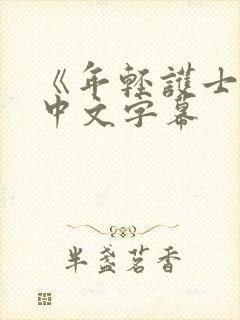 《年輕護士
中文字幕
半盞茗香